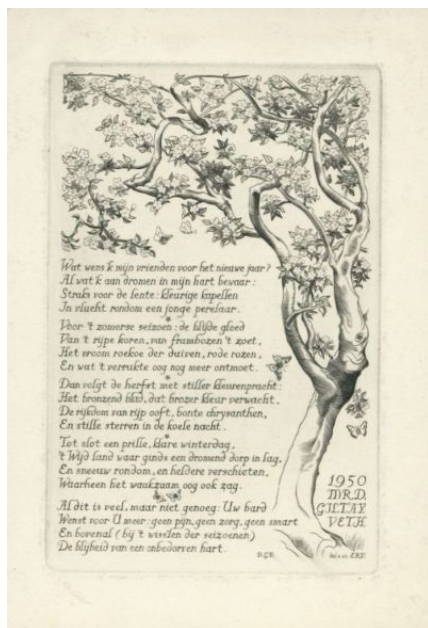 Wat wens 'k mijn vrienden voor het nieuwe jaar?
Al wat 'k aan dromen in mijn hart bewaar:
Straks voor de lente: kleurige kapellen
In vlucht rondom een jonge perelaar.
Voor 't zomerse seizoen: de blijde gloed
Van 't rijpe koren, van frambozen 't zoet,
Het vroom roekoe der duiven, rode rozen,
En wat 't verrukte oog nog meer ontmoet.
Dan volgt de herfst met stiller kleurenpracht:
Het bronzend blad, dat brozer kleur verwacht,
De rijkdom van rijp ooft, bonte chrysanthen,
En stille sterren in de koele nacht.
Tot slot een prille, klare winterdag,
't Wijd land waar ginds een dromend dorp in lag,
En sneeuw rondom, en heldere verschieten,
Waarheen het waakzaam oog ook zag.
Al dit is veel, maar niet genoeg: Uw bard
Wenst voor U meer: geen pijn, geen zorg, geen smart
En bovenal (bij 't wisselen der seizoenen)
De blijheid van een onbedorven hart.
1950
MR. D.
GILTAY
VETH
D.G.V.